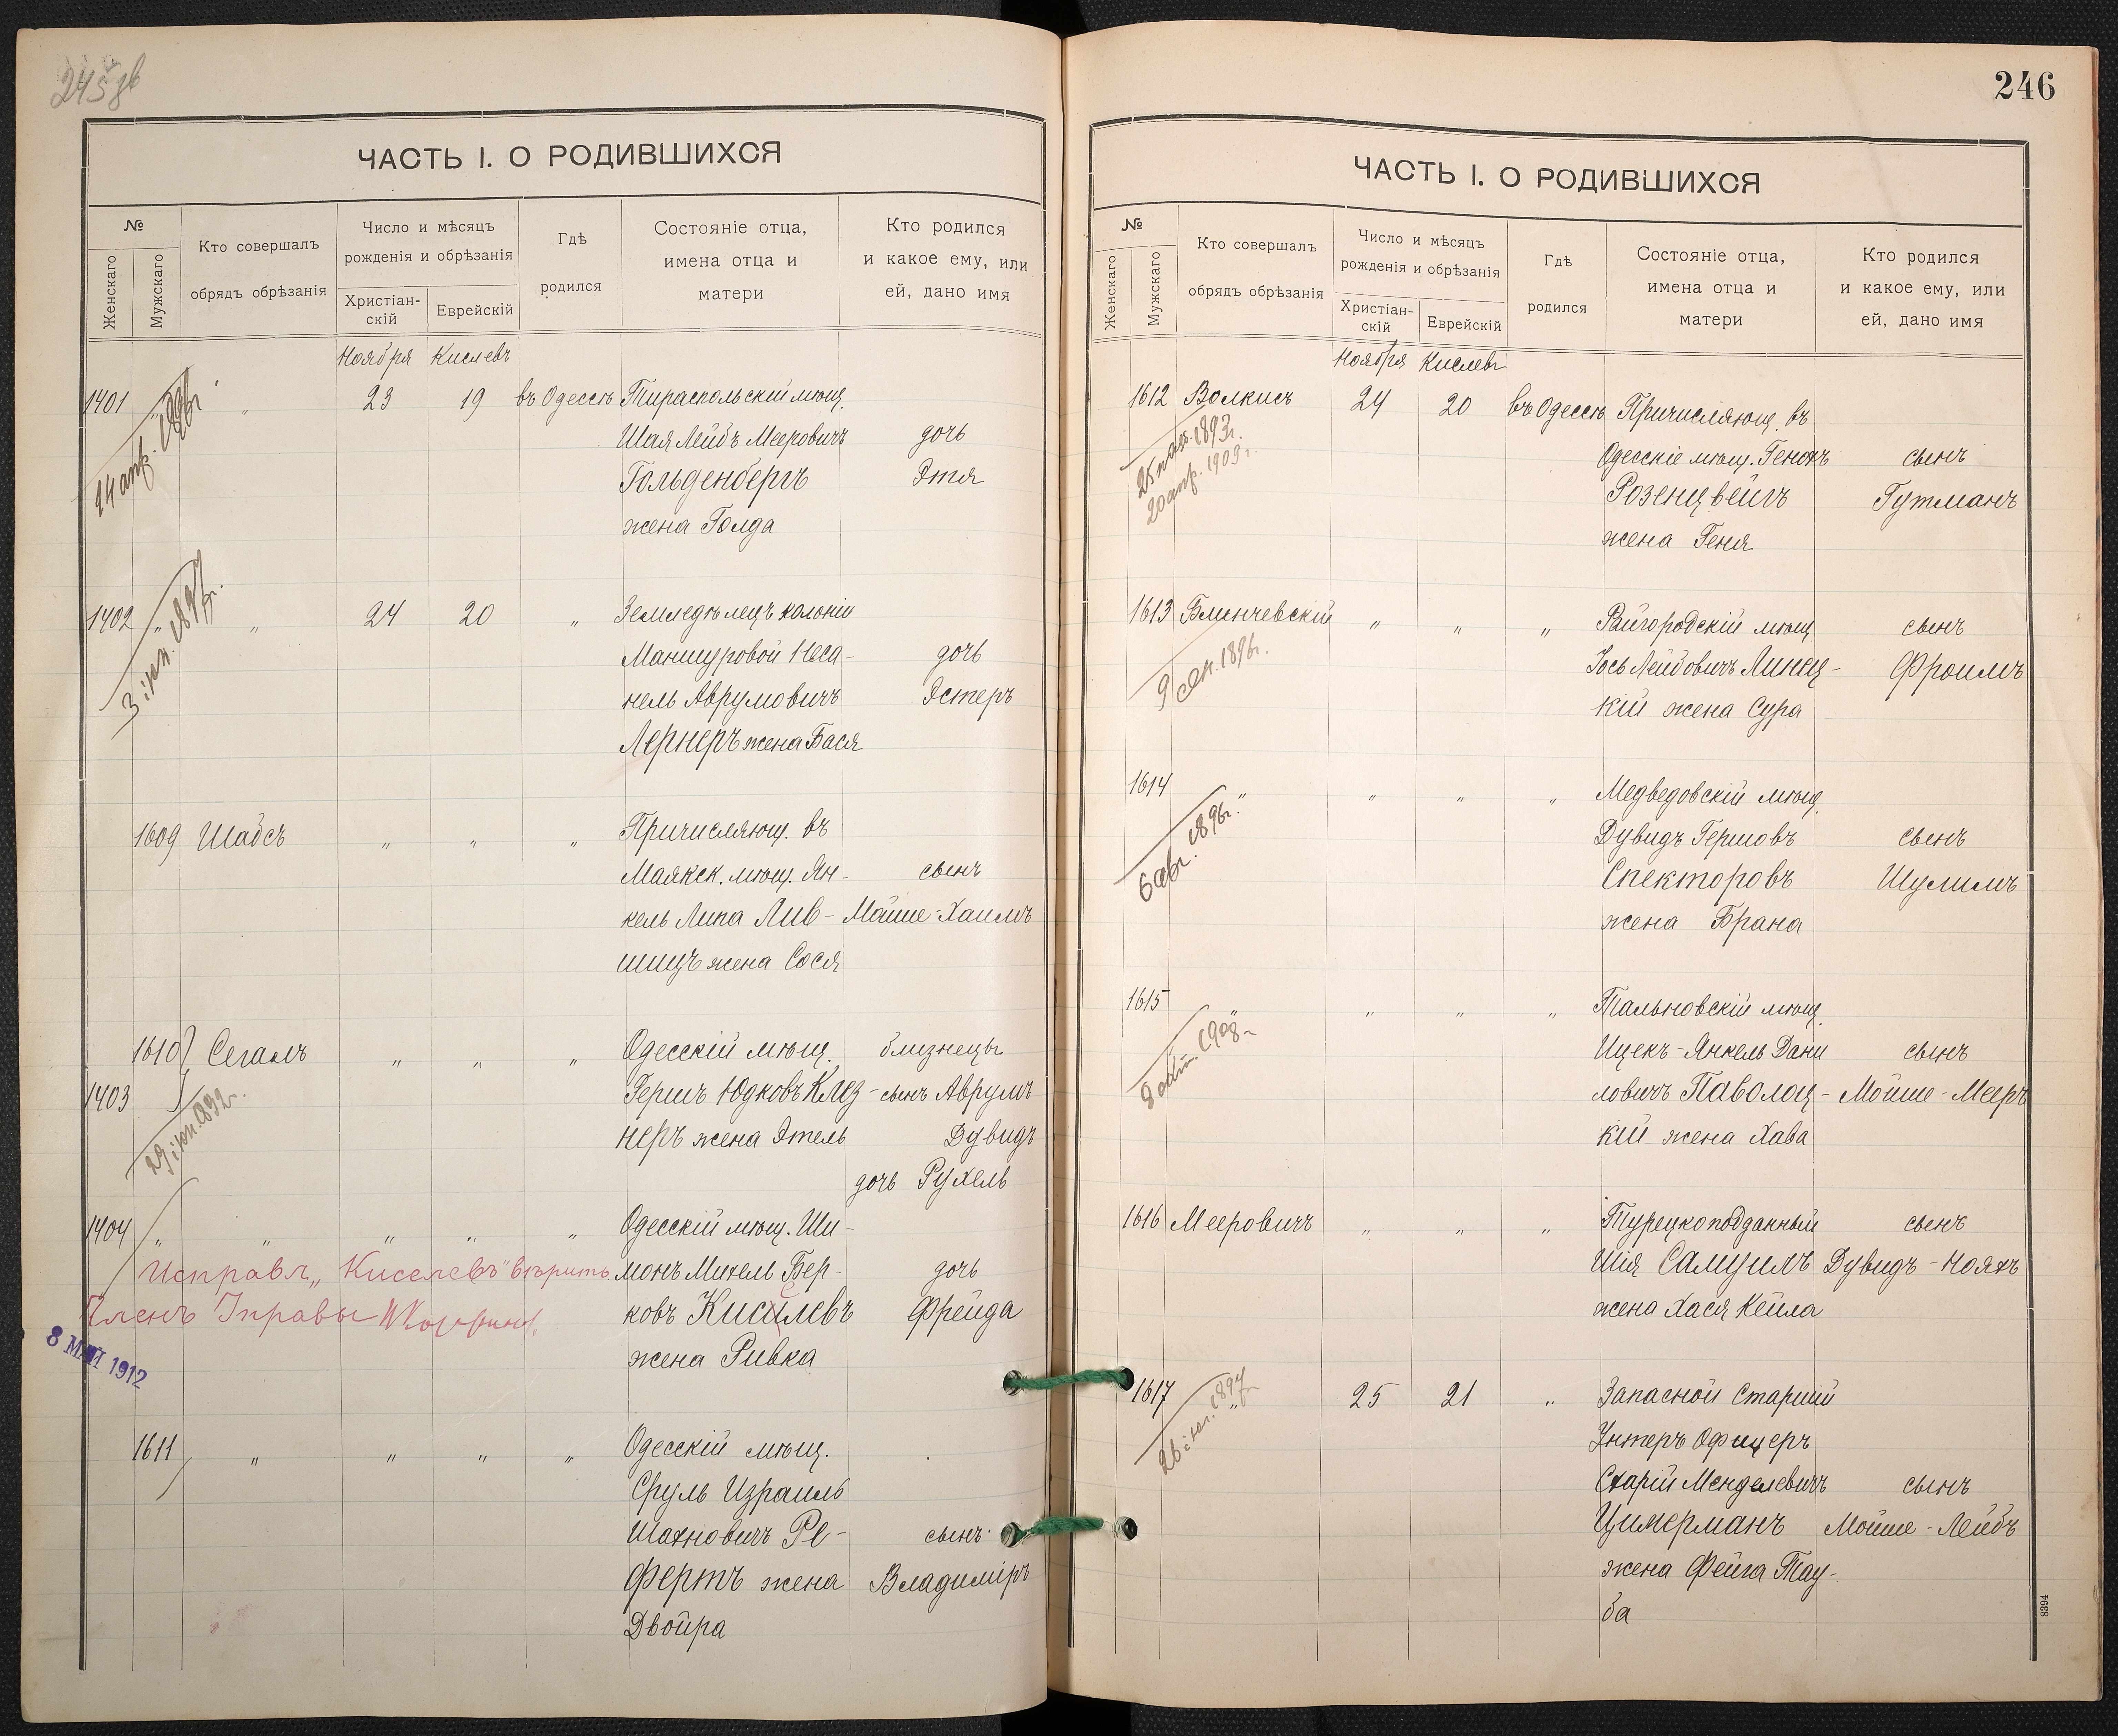 245 об
ЧАСТЬ I. О РОДИВШИХСЯ
№
Женскаго
Мужскаго
Кто совершалъ
обрядъ обрѣзанія
Число и мѣсяцъ
рожденія и обрѣзанія
Христіан-
скій
Еврейскій
Гдѣ
родился
Состояніе отца,
имена отца и
матери
Кто родился
и какое ему, или
ей, дано имя
Ноября Кислевъ
1401 „ 23 19 въ Одессѣ Тираспольскій мѣщ.
Шая Лейбъ Мееровичъ дочь
Гольденбергъ Этя
жена Голда
24 апр. 1896г.
1402 „ „ 24 20 „ Земледѣлецъ колоніи
Манзуровой Неса-
нель Аврумовичъ дочь
Лернеръ жена Бася Эстеръ
3 1897г.
1609 Шабсъ „ „ „ Причисляющ. въ
Маякск. мѣщ. Ян- сынъ
кель Липа Лив- Мойше-Хаимъ
шицъ жена Сося
1610 Сегалъ „ „ „ Одесскій мѣщ. близнецы
1403 Гершъ Юдковъ Клез- сынъ Аврумъ
неръ жена Этель Дувидъ
дочь Рухель
29 1892г.
1404 „ „ „ „ „ Одесскій мѣщ. Ши-
монъ Михель Бер- дочь
ковъ Киселевъ Фрейда
жена Ривка
Исправл. „Киселевъ" вѣрить
Членъ Управы
8 МАЙ 1912
1611 „ „ „ „ Одесскій мѣщ.
Сруль Израиль
Шахновичъ Ре- сынъ
фертъ жена Владиміръ
Двойра
246
ЧАСТЬ I. О РОДИВШИХСЯ
№
Женскаго
Мужскаго
Кто совершалъ
обрядъ обрѣзанія
Число и мѣсяцъ
рожденія и обрѣзанія
Христіан-
скій
Еврейскій
Гдѣ
родился
Состояніе отца,
имена отца и
матери
Кто родился
и какое ему, или
ей, дано имя
Ноября Кислевъ
1612 Волкисъ 24 20 въ Одессѣ Причисляющ. въ
Одесскіе мѣщ. Генохъ сынъ
Розенцвейгъ Гутманъ
жена Геня
25 1893г.
20 апр. 1909г.
1613 Блинчевскій „ „ „ Райгородскій мѣщ. сынъ
Іось Лейбовичъ Линец- Фроимъ
кій жена Сура
9 сен. 1896г.
1614 „ „ „ „ Медведовскій мѣщ.
Дувидъ Гершовъ сынъ
Спекторовъ Шулимъ
жена Брана
6 авг. 1896г.
1615 „ „ „ „ Тальновскій мѣщ.
Ицекъ-Янкель Дани сынъ
ловичъ Паволоц- Мойше-Мееръ
кій жена Хава
окт. 1908г
1616 Мееровичъ „ „ „ Турецкоподданный сынъ
Шія Самуилъ Дувидъ-Нояхъ
жена Хася Кейла
1617 „ 25 21 „ Запасной Старшій
Унтеръ Офицеръ
Схарій Менделевичъ сынъ
Цимерманъ Мойше-Лейбъ
жена Фейга Тау-
ба
26 1897
8394